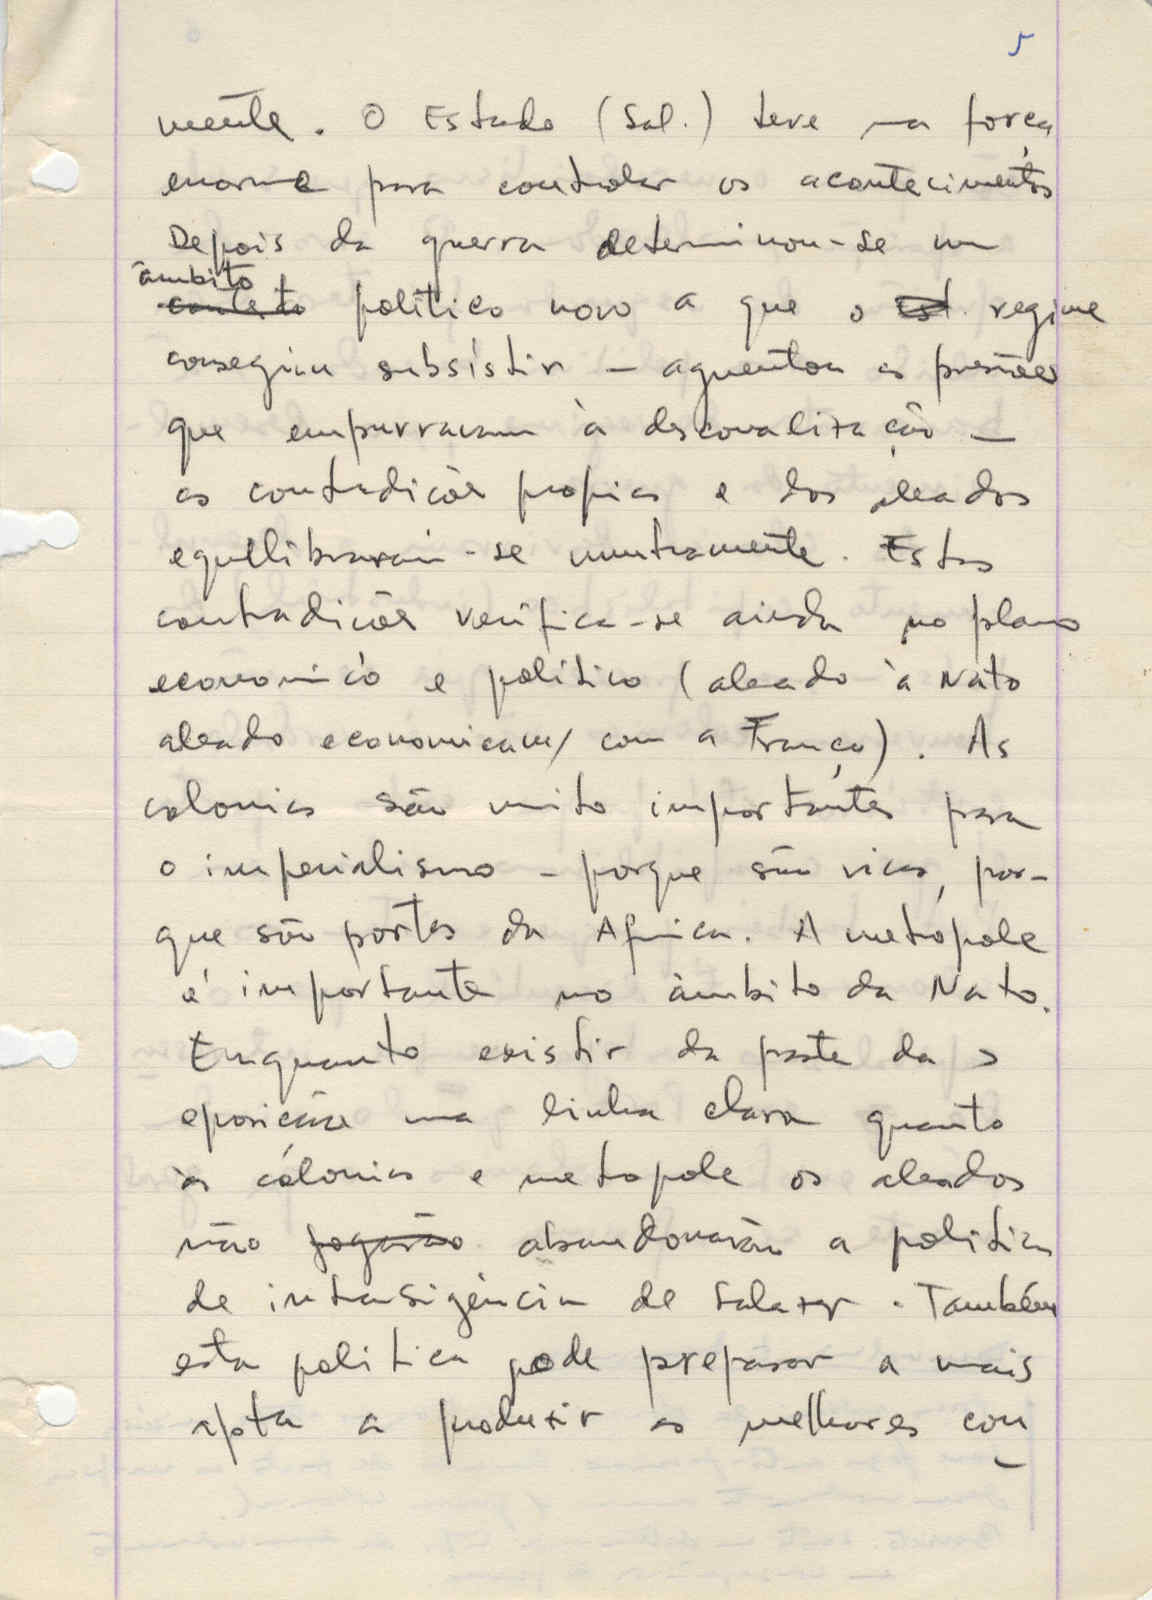 5
mente. O Estado (Sal.) teve ma força
enorme para controlar os acontecimentos
Depois da guerra determinou-se um
âmbito
contexto político novo a que o Est. regime
conseguiu subsistir – aguentou as pressões
que empurravam à descolonização –
as contradições próprias e dos aleados
equilibraram-se mutuamente. Estas
contradições verifica-se ainda no plano
económico e político (aleado à Nato
aleado economicam/ com a França). As
colonias são muito importantes para
o imperialismo – porque são ricas, por-
que são portas da Africa. A metrópole
é importante no âmbito da Nato.
Enquanto existir da parte da
oposição uma linha clara quanto
às colónias e metropole os aleados
não jogarão abandonarão a politica
de intransigência de Salazar. Também
esta politica pode preparar a mais
apta a produzir as melhores con